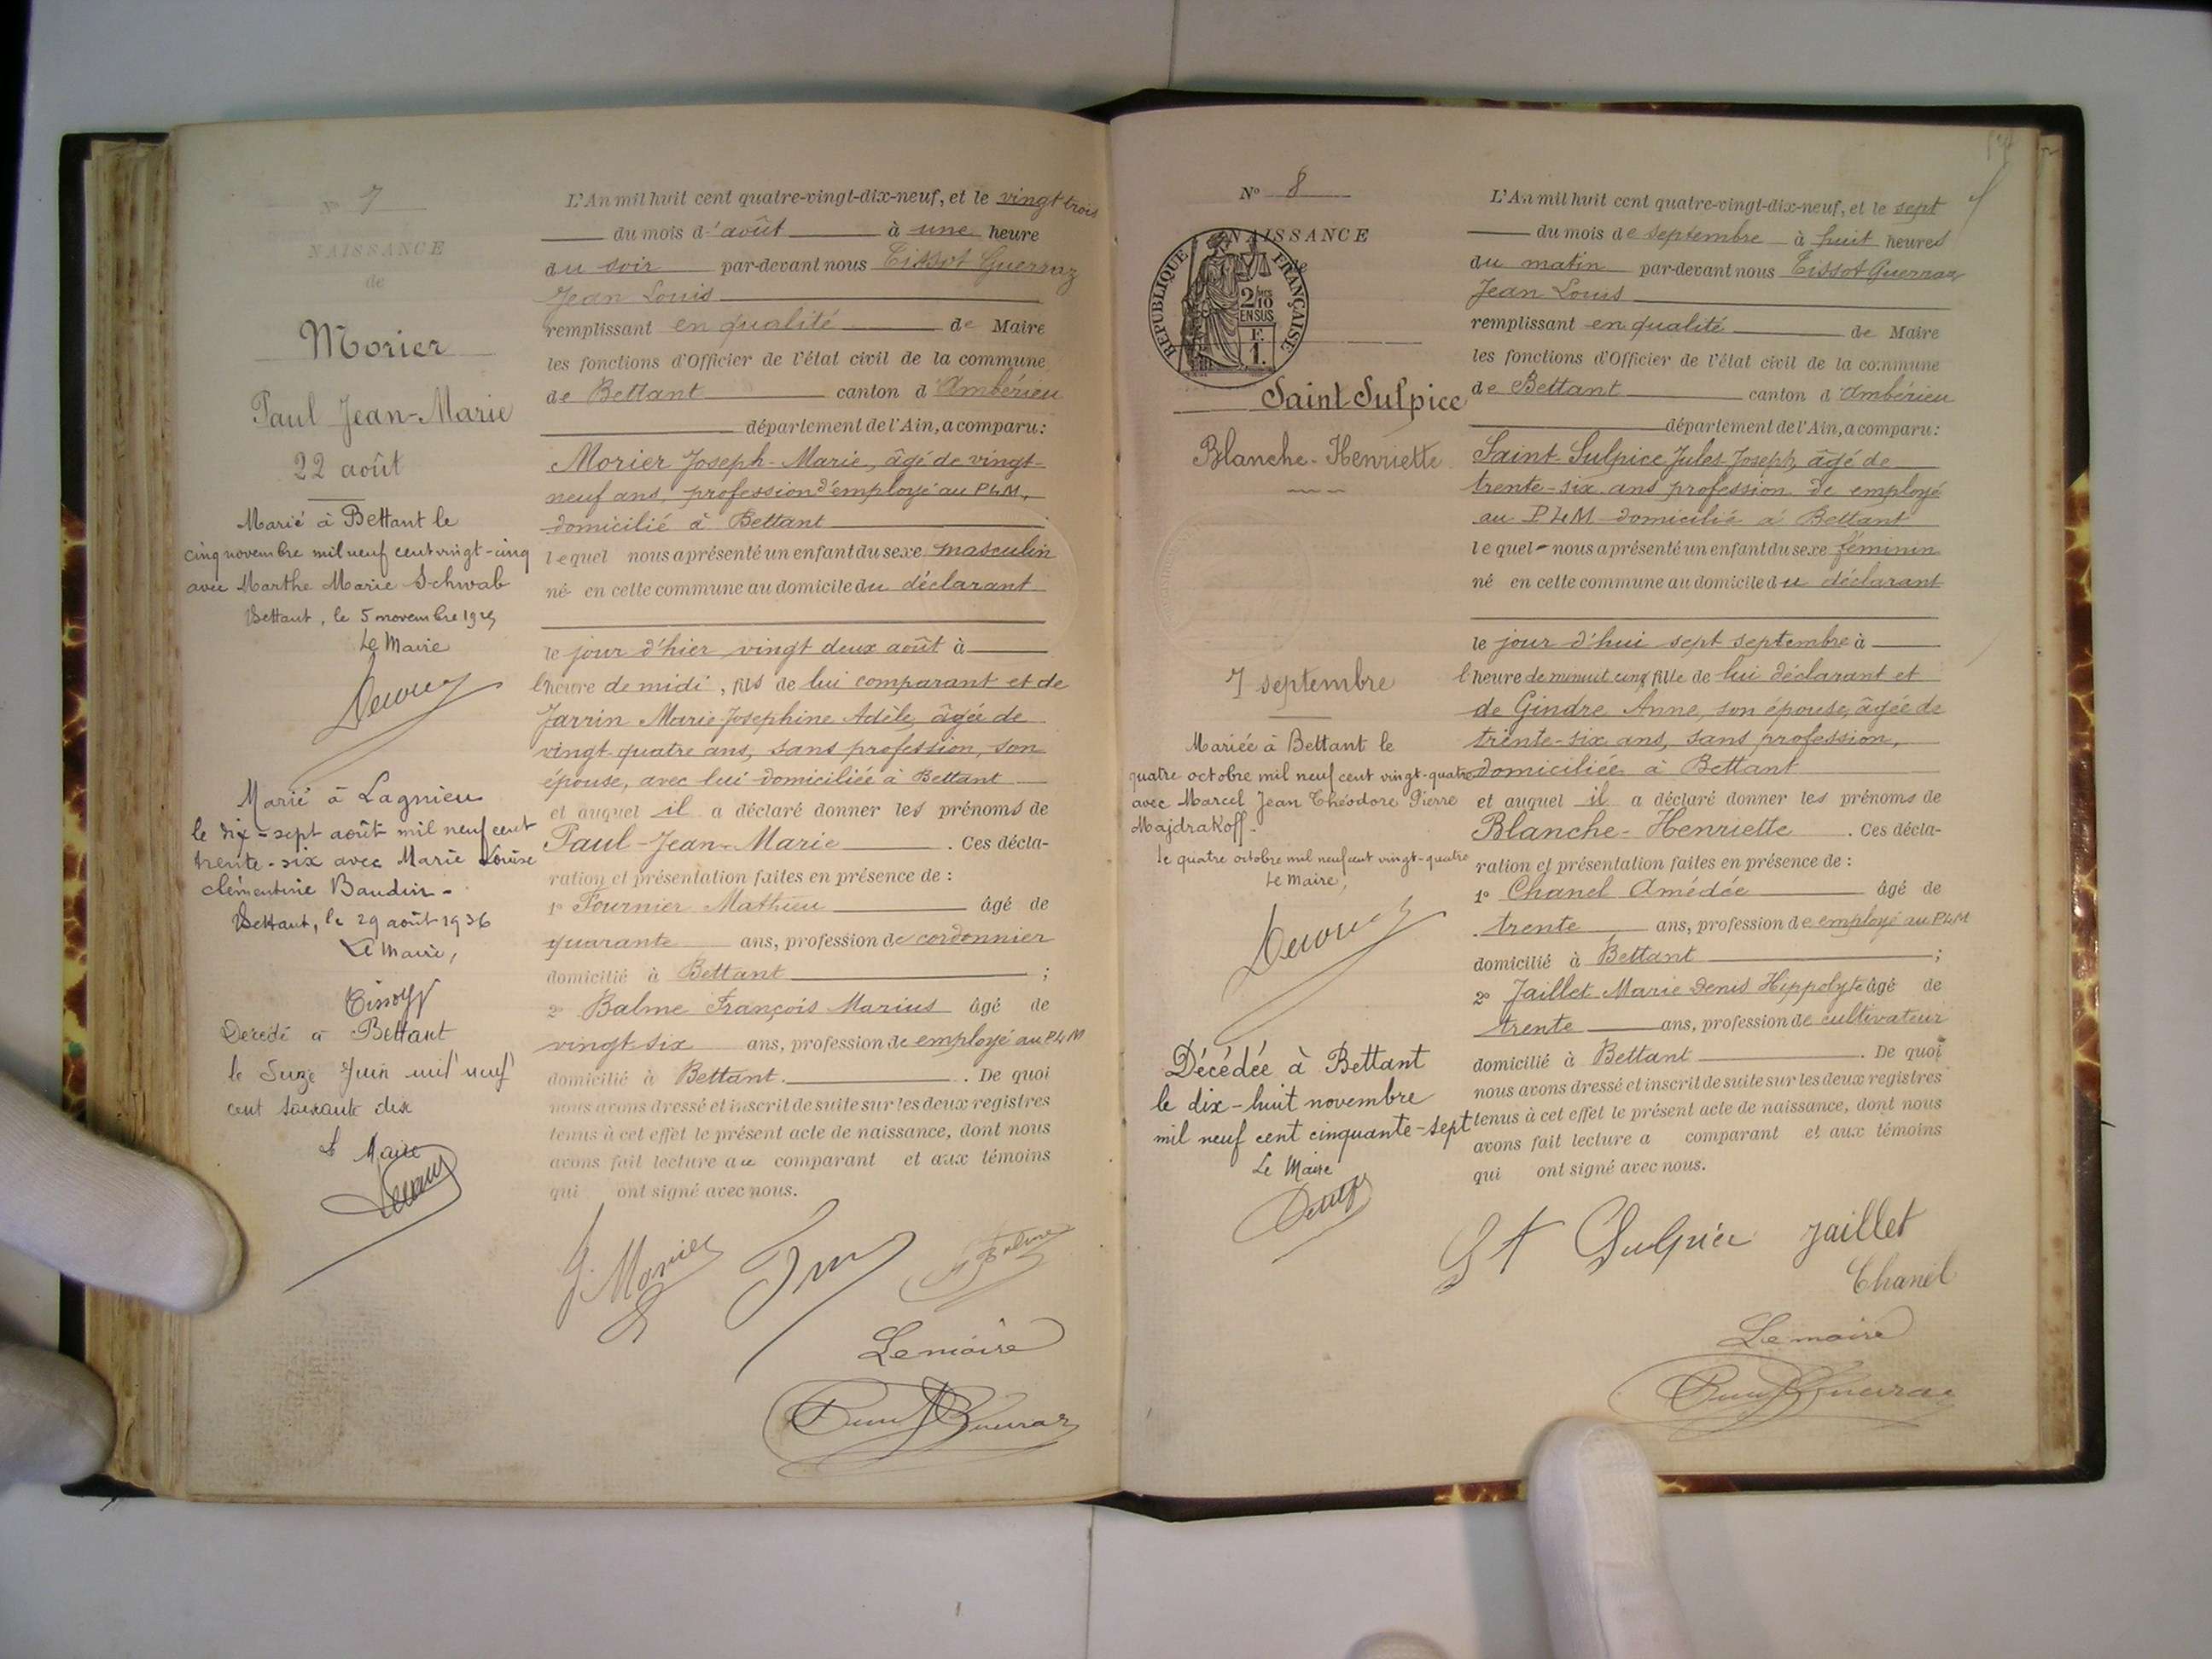 N° 7
NAISSANCE
de
Morier
Paul Jean-Marie
22 août
Marié à Bettant le
cinq novembre mil neuf cent vingt-cinq
avec Marthe Marie Schwab
Bettant, le 5 novembre 1925
Le Maire
Marié à Lagnieu
le dix-sept août mil neuf cent
trente-six avec Marie Louise
Clémentine Baudin-
Bettant, le 29 août 1936
Le Maire,
Décédé à Bettant
le Juin mil neuf
cent soixante dix
Le Maire
L'An mil huit cent quatre-vingt-dix-neuf, et le vingt trois
du mois d'août à une heure
du soir par-devant nous Tissot Guerraz
Jean Louis
remplissant en qualité de Maire
les fonctions d'Officier de l'état civil de la commune
de Bettant canton d'Ambérieu
département de l'Ain, a comparu:
Morier Joseph-Marie, âgé de vingt-
neuf ans, profession d'employé au PLM,
domicilié à Bettant
lequel nous a présenté un enfant du sexe masculin
né en cette commune au domicile du déclarant
le jour d'hier vingt deux août à
l'heure de midi, fils de lui comparant et de
Jarrin Marie Josephine Adèle, âgée de
vingt-quatre ans, sans profession, son
épouse, avec lui domiciliée à Bettant
et auquel il a déclaré donner les prénoms de
Paul-Jean-Marie. Ces décla-
ration et présentation faites en présence de :
1° Fournier Mathieu âgé de
quarante ans, profession de cordonnier
domicilié à Bettant ;
2° Balme François Marius âgé de
vingt six ans, profession de employé au PLM
domicilié à Bettant. . De quoi
nous avons dressé et inscrit de suite sur les deux registres
tenus à cet effet le présent acte de naissance, dont nous
avons fait lecture au comparant et aux témoins
qui ont signé avec nous.
J. Morier
Balme
Le maire
N° 8
NAISSANCE
de
RÉPUBLIQUE FRANÇAISE
2/10
EN SUS
F.
1.
Saint-Sulpice
Blanche-Henriette
7 septembre
Mariée à Bettant le
quatre octobre mil neuf cent vingt-quatre
avec Marcel Jean Théodore Pierre
Majdrakoff-
le quatre octobre mil neuf cent vingt-quatre
Le Maire,
Décédée à Bettant
le dix-huit novembre
mil neuf cent cinquante-sept
Le Maire
L'An mil huit cent quatre-vingt-dix-neuf, et le sept
du mois de septembre à huit heures
du matin par-devant nous Tissot Guerraz
Jean Louis
remplissant en qualité de Maire
les fonctions d'Officier de l'état civil de la commune
de Bettant canton d'Ambérieu
département de l'Ain, a comparu:
Saint-Sulpice Jules Joseph, âgé de
trente-six ans profession de employé
au PLM domicilié à Bettant
lequel nous a présenté un enfant du sexe féminin
né en cette commune au domicile du déclarant
le jour d'hui sept septembre à
l'heure de minuit cinq fille de lui déclarant et
de Gindre Anne, son épouse, âgée de
trente-six ans, sans profession,
domiciliée à Bettant
et auquel il a déclaré donner les prénoms de
Blanche-Henriette. Ces décla-
ration et présentation faites en présence de :
1° Chanel Amédée âgé de
trente ans, profession de employé au PLM
domicilié à Bettant ;
2° Jaillet Marie Denis Hippolyte âgé de
trente ans, profession de cultivateur
domicilié à Bettant. De quoi
nous avons dressé et inscrit de suite sur les deux registres
tenus à cet effet le présent acte de naissance, dont nous
avons fait lecture a comparant et aux témoins
qui ont signé avec nous.
St Sulpice Jaillet
Chanel
Le maire